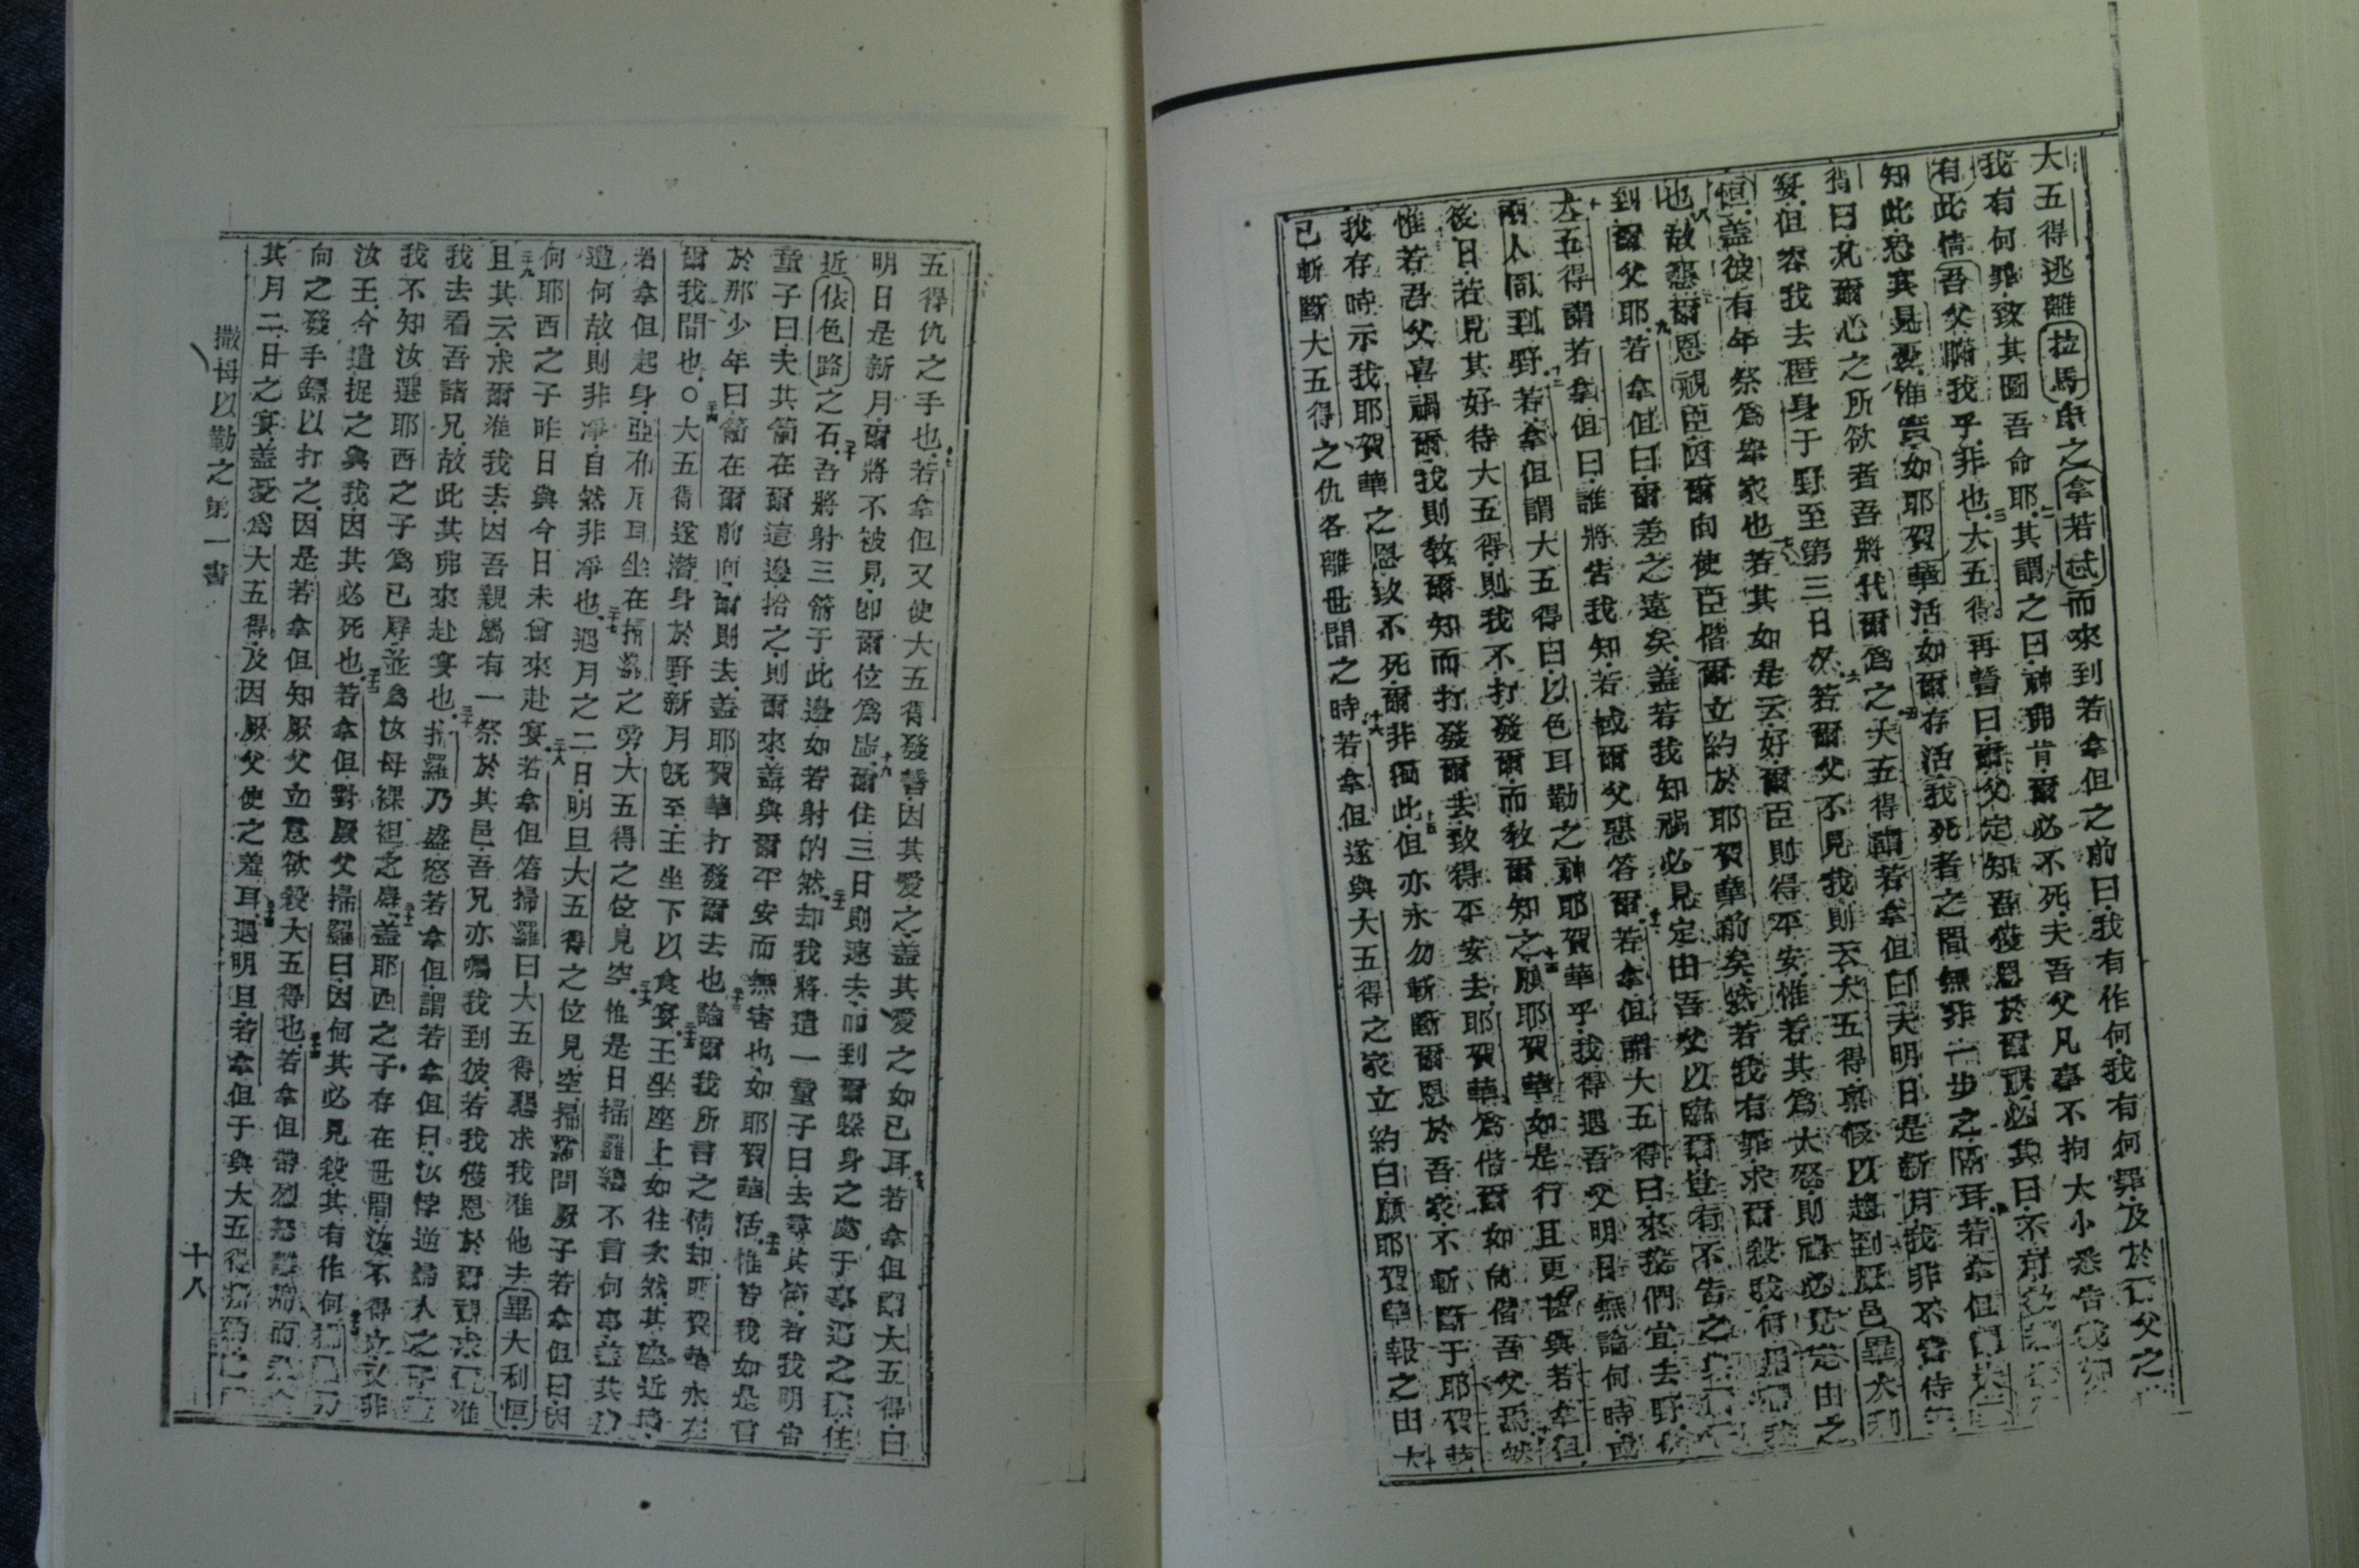 大五得逃離拉馬中之拿若忒而來到若拿但之前曰我有作何我有何罪及於汝父之
我有何罪致其圖吾命耶其謂之曰神弗肯爾必不死夫吾父凡事不拘大小悉告我知
有此情吾父瞞我乎非也大五得再誓曰爾父定知吾獲恩於爾眼必其曰不可
知此恐其見憂惟實如耶賀華活如爾存活我死者之間無非一步之隔耳若拿但謂大五
得曰凡爾心之所欲者吾將代爾為之大五得謂若拿但曰夫明日是新月我非不當侍
宴但容我去匿身于野至第三日夕若爾父不見我則云大五得稟假以趨到厥邑畢大利
恒蓋彼有年祭為舉家也若其如是云好爾臣則得平安惟若其為大怒則禍必見定由之
也故懇爾恩視臣因爾向使臣偕爾立約於耶賀華前矣然若我有罪求爾殺我何
到爾父耶若拿但曰爾差之遠矣蓋若我知禍必見定由吾父以臨爾豈有不告之
大五得謂若拿但曰誰將告我知若或爾父惡答爾若拿但謂大五得曰來我們宜去野
兩人同到野若拿但謂大五得曰以色耳勒之神耶賀華乎我得遇吾父明日無論何時或
後日若見其好待大五得則我不打發爾而教爾知之願耶賀華如是行且更甚與若拿但
惟若吾父喜禍爾我則教爾知而打發爾去致得平安去耶賀華為偕爾如向偕吾父焉然
我存時示我耶賀華之恩致不死爾非獨此但亦永勿斬斷爾恩於吾家不斬斷于耶賀華
已斬斷大五得之仇各離世間之時若拿但遂與大五得之家立約曰願耶賀華報之由大
五得仇之手也若拿但又使大五得發誓因其愛之蓋其愛之如己耳若拿但謂大五得曰
明日是新月爾將不被見卽爾位為虛爾住三日則速去而到爾躲身之處于事迈之 住
近依色路之石吾將射三箭于此邊如若射的然却我將遣一童子曰去尋其箭若我明告
童子曰夫其箭在爾這邊拾之則爾來蓋與爾平安而無害也如耶賀華活惟若我如是言
於那少年曰箭在爾前面爾則去蓋耶賀華打發爾去也論爾我所言之情却耶賀華永在
爾我間也○大五得遂潛身於野新月旣至王坐下以食宴王坐座上如往次然其座近墻
若拿但起身亞布尼耳坐在掃羅之旁大五得之位見空惟是日掃羅總不言何事蓋其
遭何故則非凈自然非凈也遇月之二日明旦大五得之位見空掃羅問厥子若拿但曰因
何耶西之子昨日與今日未曾來赴宴若拿但答掃羅曰大五得懇求我准他去畢大利恒
且其云求爾准我去因吾親屬有一祭於其邑吾兄亦囑我到彼若我獲恩於爾眼求 准
我去看吾諸兄故此其弗來赴宴也掃羅乃盛怒若拿但謂若拿但曰汝悖逆婦人之子
我不知汝選耶西之子為己辱並為汝母裸裎之辱蓋耶西之子存在世間汝不得立又非
汝王今遣捉之與我因其必死也若拿但對厥父掃羅曰因何其必見殺其有作何
向之發手鏢以打之因是若拿但知厥父立意欲殺大五得也若拿但帶烈怒離
其月二日之宴蓋憂為大五得及因厥父使之羞耳遇明旦若拿但于與大五得
撒母以勒之第一書
十八